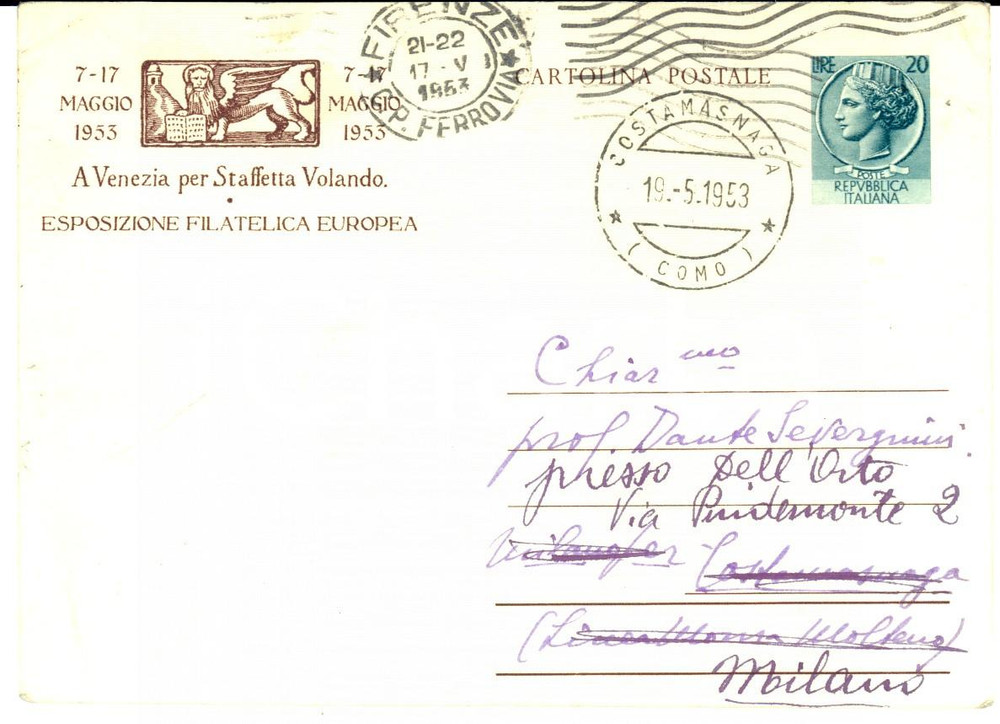 FIRENZE
21-22
17-V
1953
FERROVIA
7-17
MAGGIO
1953
7-17
MAGGIO
1953
A Venezia per Staffetta Volando.
ESPOSIZIONE FILATELICA EUROPEA
CARTOLINA POSTALE
COSTAMASNAGA
19.-5.1953
(COMO)
LIRE 20
POSTE
REPVBBLICA
ITALIANA
Chiar mo
prof. Dante Severgnini
presso Dell'Orto
Via Pindemonte 2
Milano per Costamasnaga
(Linea Monza Molteno)
Milano